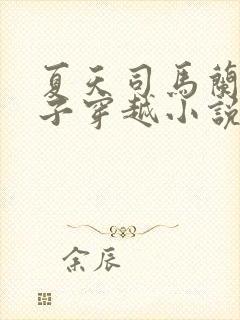 夏天司馬蘭
子穿越小說
余辰